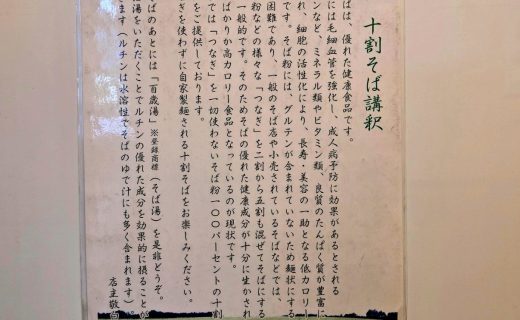 十割そば講釈
ばは、優れた健康食品です。
には毛細血管を強化し、成人病予防に効果があるとされる
ンなど、ミネラル類やビタミン類、良質のたんぱく質が豊富に
れ、細胞の活性化により、長寿・美容の一助となる低カロリー
です。そば粉には、グルテンが含まれていないため麺状にする
困難であり、一般のそば店や小売されているそばなどでは、
粉などの様々な「つなぎ」を二割から五割も混ぜてそばにする
一般的です。そのためそばの優れた健康成分が十分に生かされ
ばかりか高カロリー食品となっているのが現状です。
では「つなぎ」を一切使わないそば粉一〇〇パーセントの十割
をご提供しております。
ぎを使わずに自家製麺される十割そばをお楽しみください。
ばのあとには「百歳湯」※登録商標（そば湯）を是非どうぞ。
湯をいただくことでルチンの優れた成分を効果的に摂ることが
ます（ルチンは水溶性でそばのゆで汁にも多く含まれます）。
店主敬白